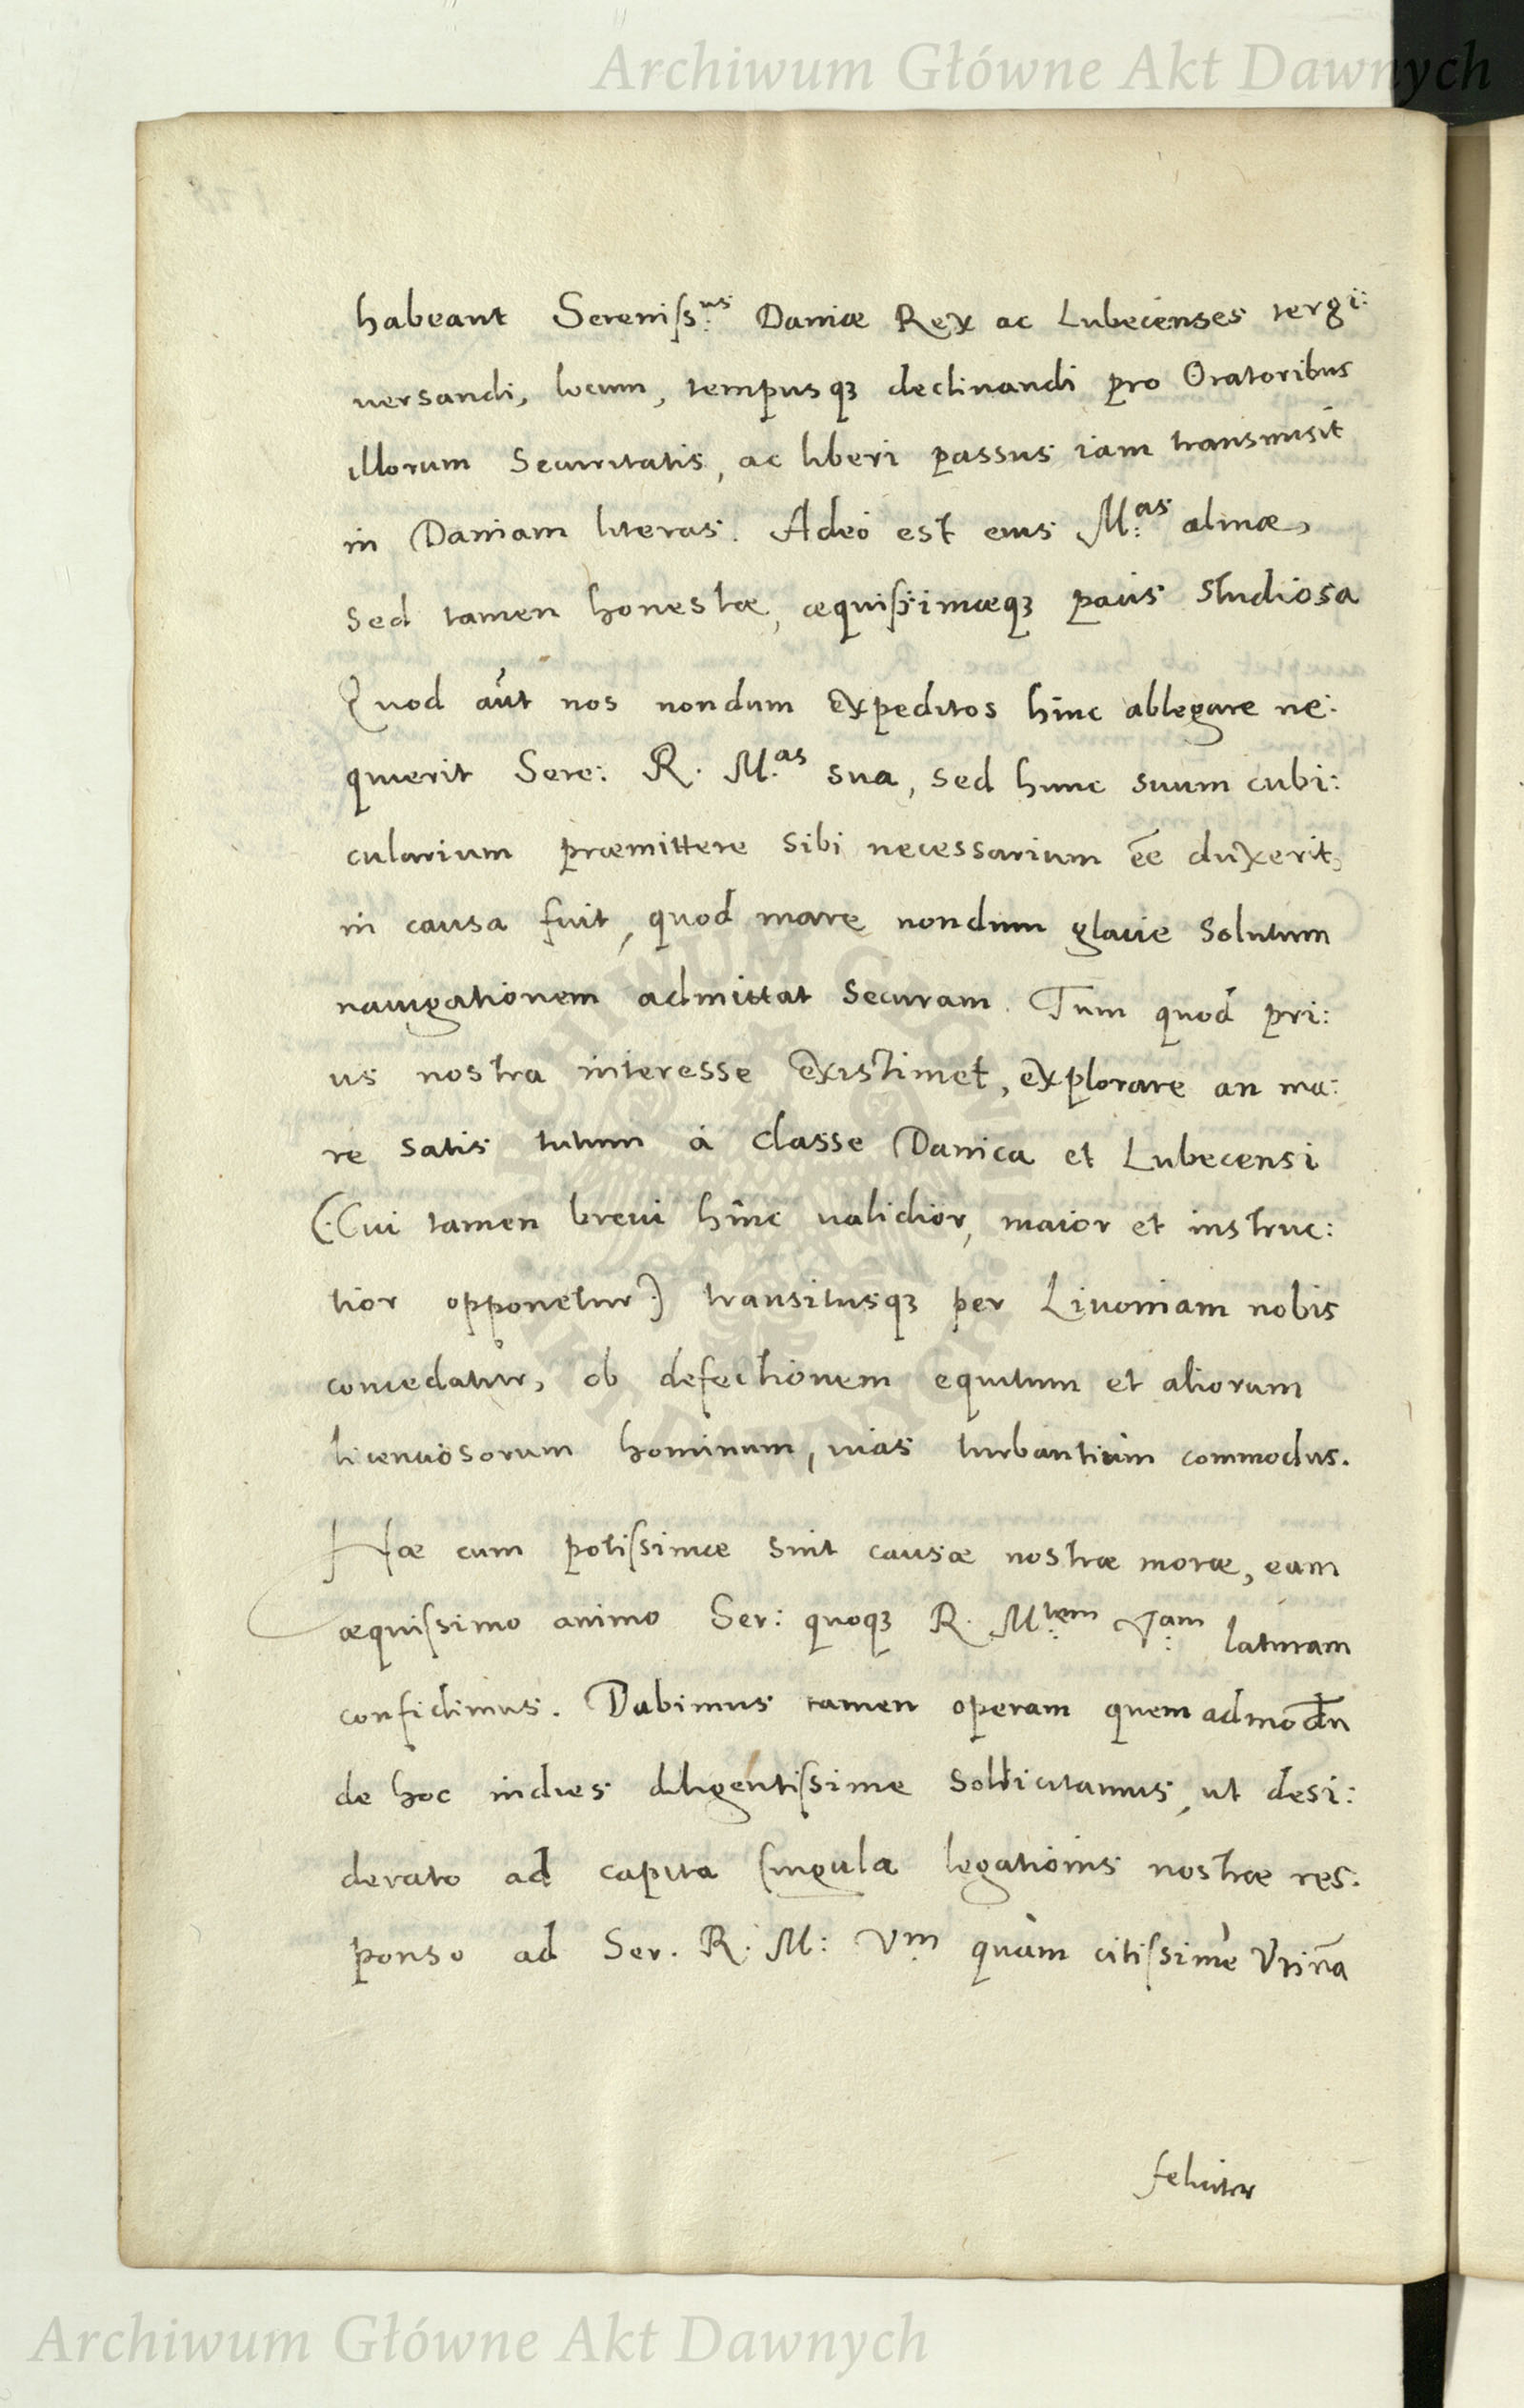 Archiwum Główne Akt Dawnych
habeant Sereniſs:us Daniæ Rex ac Lubecenses tergi:
uersandi, locum, tempusqꝫ declinandi pro Oratoribus
illorum Securitatis, ac liberi passus iam transmisit
in Daniam literas. Adeò est eius M:as almæ,
sed tamen honestæ, æquiſsimæqꝫ pacis studiosa
Quod aūt nos nondum expeditos hinc ablegare ne:
quierit Sere: R. M:as sua, sed hunc suum cubi:
cularium præmittere sibi necessarium eē duxerit,
in causa fuit, quod mare nondum glacie solutum
nauigationem admittat securam. Tum quod pri:
us nostra interesse existimet, explorare an ma:
re satis tutum à classe Danica et Lubecensi
(:Cui tamen breui hinc ualidior, maior et instruc:
tior opponetur:) transitusqꝫ per Liuoniam nobis
concedatur, ob defectionem equitum et aliorum
licentiosorum hominum, uias turbantium commodus.
Hæ cum potiſsimæ sint causæ nostræ moræ, eam
æquiſsimo animo Ser: quoqꝫ R. M:tem V:am laturam
confidimus. Dabimus tamen operam quemadmodū
de hoc indies diligentiſsime sollicitamus, ut desi:
derato ad capita singula legationis nostræ res:
ponso ad Ser. R. M: Vm quàm citiſsimè
feliciter
ARCHIWUM GŁÓWNE
AKT DAWNYCH
Archiwum Główne Akt Dawnych